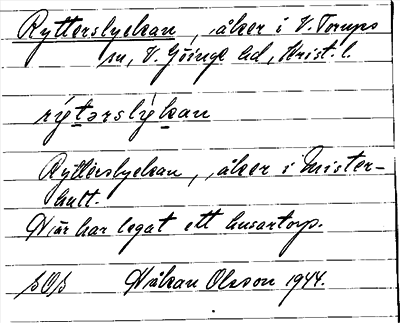 Rytterslyckan, åker i V. Torups
sn, V. Göinge hd, Krist. l.
rýtərslỳkan
Rytterslyckan, åker i Mister-
hult.
Här har legat ett husartorp.
SOS Håkan Olsson 1944.